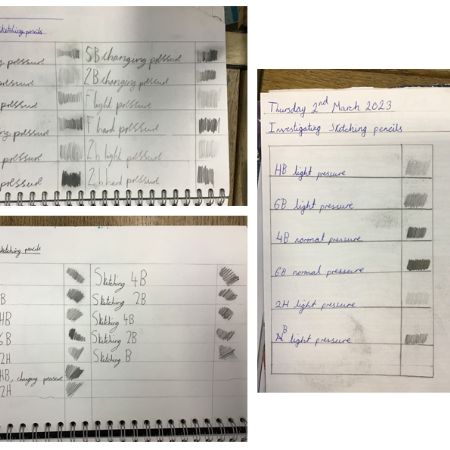 Sketching pencils.
pressure 5B changing pressure
pressure 2B changing pressure
pressure F light pressure
pressure F hard pressure
pressure 2h light pressure
pressure 2h hard pressure
Sketching pencils
Sketching 4B
B Sketching 2B
HB Sketching 4B
6B Sketching 2B
2H Sketching B
HB, changing pressure
2H
Thursday 2nd March 2023
Investigating Sketching pencils
HB light pressure
6B light pressure
4B normal pressure
6B normal pressure
2H light pressure
B light pressure